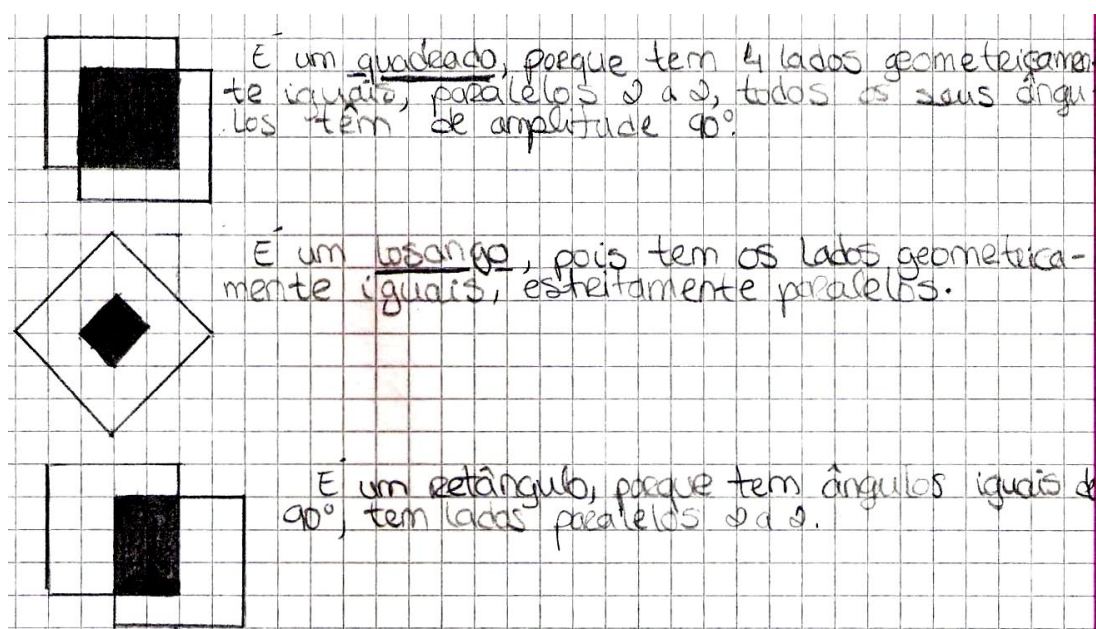 É um quadrado, porque tem 4 lados geometricamen-
te iguais, paralelos 2 a 2, todos os seus ângu-
los têm de amplitude 90º.
É um losango, pois tem os lados geometrica-
mente iguais, estreitamente paralelos.
É um retângulo, porque tem ângulos iguais de
90º, tem lados paralelos 2 a 2.